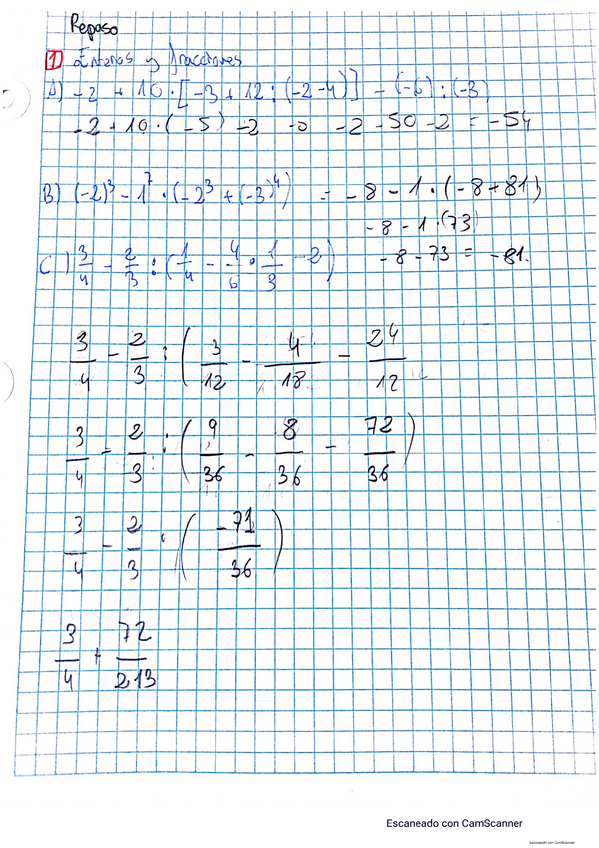 Repaso
1 Enteros y fracciones
A) -2 + 10 · [-3 + 12 : (-2-4)] - (-6) : (-3)
-2 + 10 · (-5) -2 → -2 -50 -2 = -54
B) (-2)³ - 1⁷ · (-2³ + (-3)⁴) = -8 - 1 · (-8 + 81)
-8 - 1 · (73)
-8 - 73 = -81.
C) 3/4 - 2/3 : (1/4 - 4/6 · 1/3 - 2)
3/4 - 2/3 : (3/12 - 4/18 - 24/12
3/4 - 2/3 : (9/36 - 8/36 - 72/36)
3/4 - 2/3 : (-71/36)
3/4 + 72/213
Escaneado con CamScanner
Escaneado con CamScanner